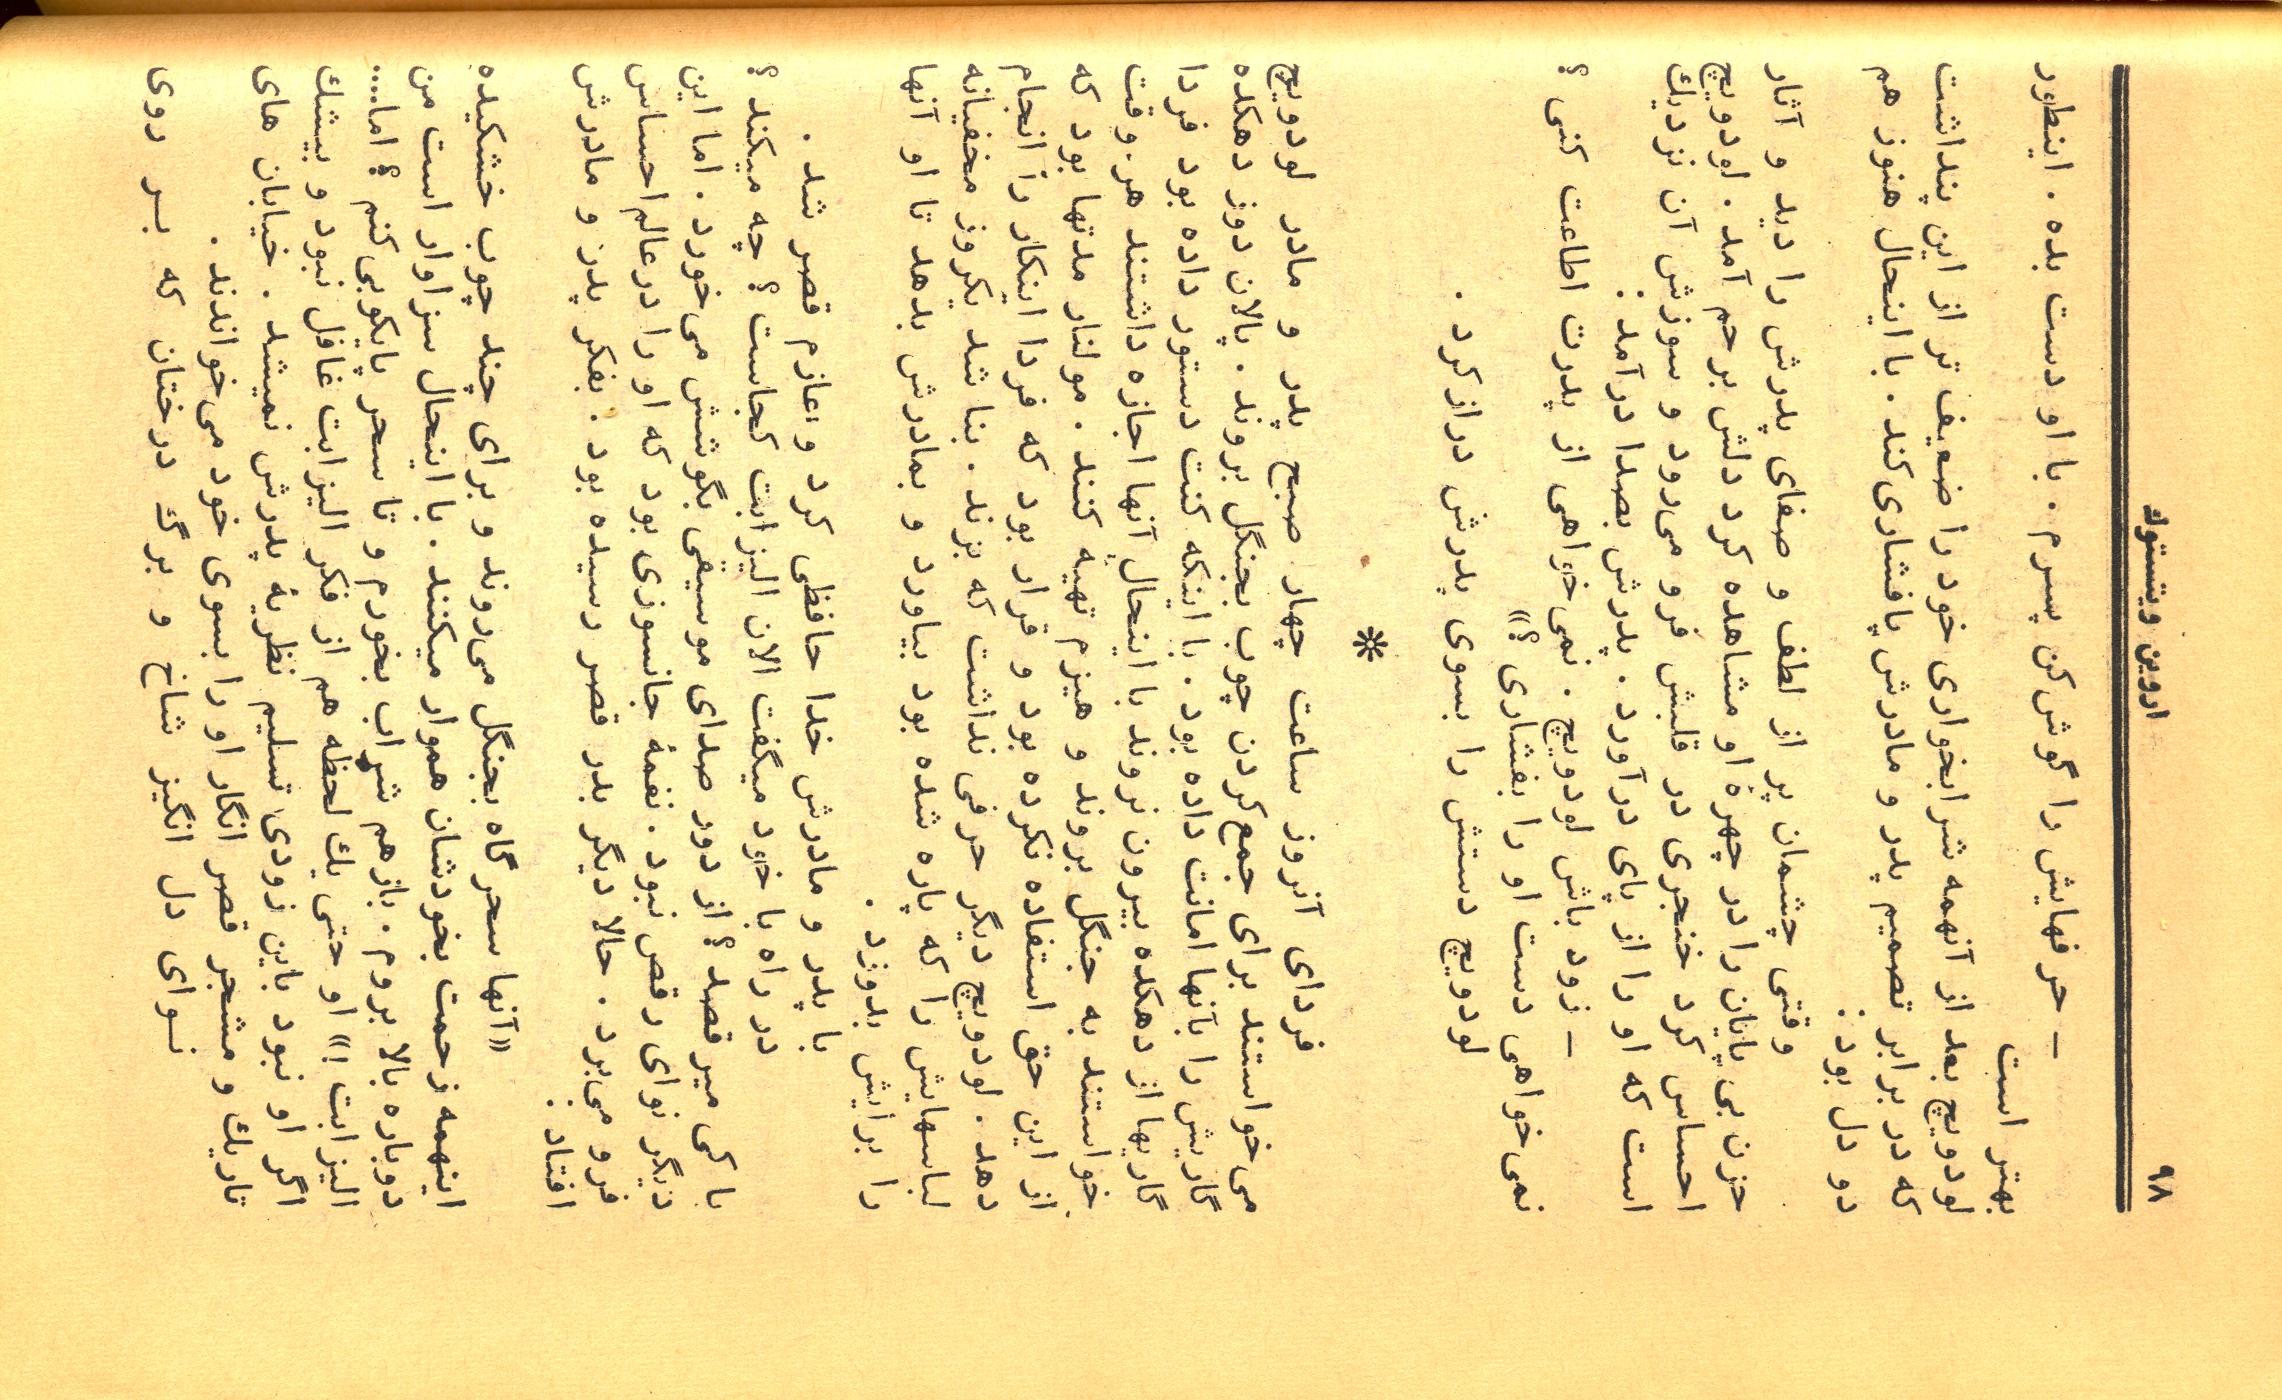 ۹۸
اروین ویتستوك
— حرفهایش را گوش کن پسرم . با او دست بده . اینطور
بهتر است
لودویچ بعد از آنهمه شرابخواری خود را ضعیف تر از این پنداشت
که در برابر تصمیم پدر و مادرش پافشاری کند . با اینحال هنوز هم
دو دل بود :
وقتی چشمان پر از لطف و صفای پدرش را دید و آثار
حزن بی پایان را در چهرهٔ او مشاهده کرد دلش برحم آمد . لودویچ
احساس کرد خنجری در قلبش فرو می‌رود و سوزش آن نزدیك
است که او را از پای درآورد . پدرش بصدا درآمد :
— زود باش لودویچ . نمی‌خواهی از پدرت اطاعت کنی ؟
نمی‌خواهی دست او را بفشاری ؟»
لودویچ دستش را بسوی پدرش دراز کرد .
*
فردای آنروز ساعت چهار صبح پدر و مادر لودویچ
می‌خواستند برای جمع کردن چوب بجنگل بروند . پالان دوز دهکده
گاریش را بآنها امانت داده بود . با اینکه کنت دستور داده بود فردا
گاریها از دهکده بیرون نروند با اینحال آنها اجازه داشتند هر وقت
خواستند به جنگل بروند و هیزم تهیه کنند . مولنار مدتها بود که
از این حق استفاده نکرده بود و قرار بود که فردا اینکار را انجام
دهد . لودویچ دیگر حرفی نداشت که بزند . بنا شد یکروز مخفیانه
لباسهایش را که پاره شده بود بیاورد و بمادرش بدهد تا او آنها
را برایش بدوزد .
با پدر و مادرش خدا حافظی کرد و عازم قصر شد .
در راه با خود میگفت الان الیزابت کجاست ؟ چه میکند ؟
با کی میرقصد ؟ از دور صدای موسیقی بگوشش می‌خورد . اما این
دیگر نوای رقص نبود . نغمهٔ جانسوزی بود که او را درعالم احساس
فرو می‌برد . حالا دیگر بدر قصر رسیده بود . بفکر پدر و مادرش
افتاد :
«آنها سحرگاه بجنگل می‌روند و برای چند چوب خشکیده
اینهمه زحمت بخودشان هموار میکنند . با اینحال سزاوار است من
دوباره بالا بروم . بازهم شراب بخورم و تا سحر پایکوبی کنم ؟ اما....
الیزابت !» او حتی یك لحظه هم از فکر الیزابت غافل نبود و بیشك
اگر او نبود باین زودی تسلیم نظریهٔ پدرش نمیشد . خیابان های
تاریك و مشجر قصر انگار او را بسوی خود می‌خواندند .
نوای دل انگیز شاخ و برگ درختان که بر روی